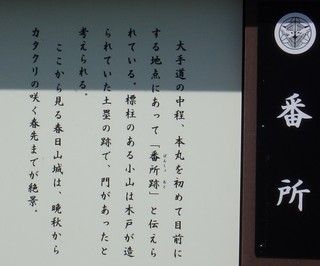 番所
大手道の中程、本丸を初めて目前に
する地点にあって「番所跡」と伝えら
れている。標柱のある小山は木戸が造
られていた土塁の跡で、門があったと
考えられる。
ここから見る春日山城は、晩秋から
カタクリの咲く春先までが絶景。